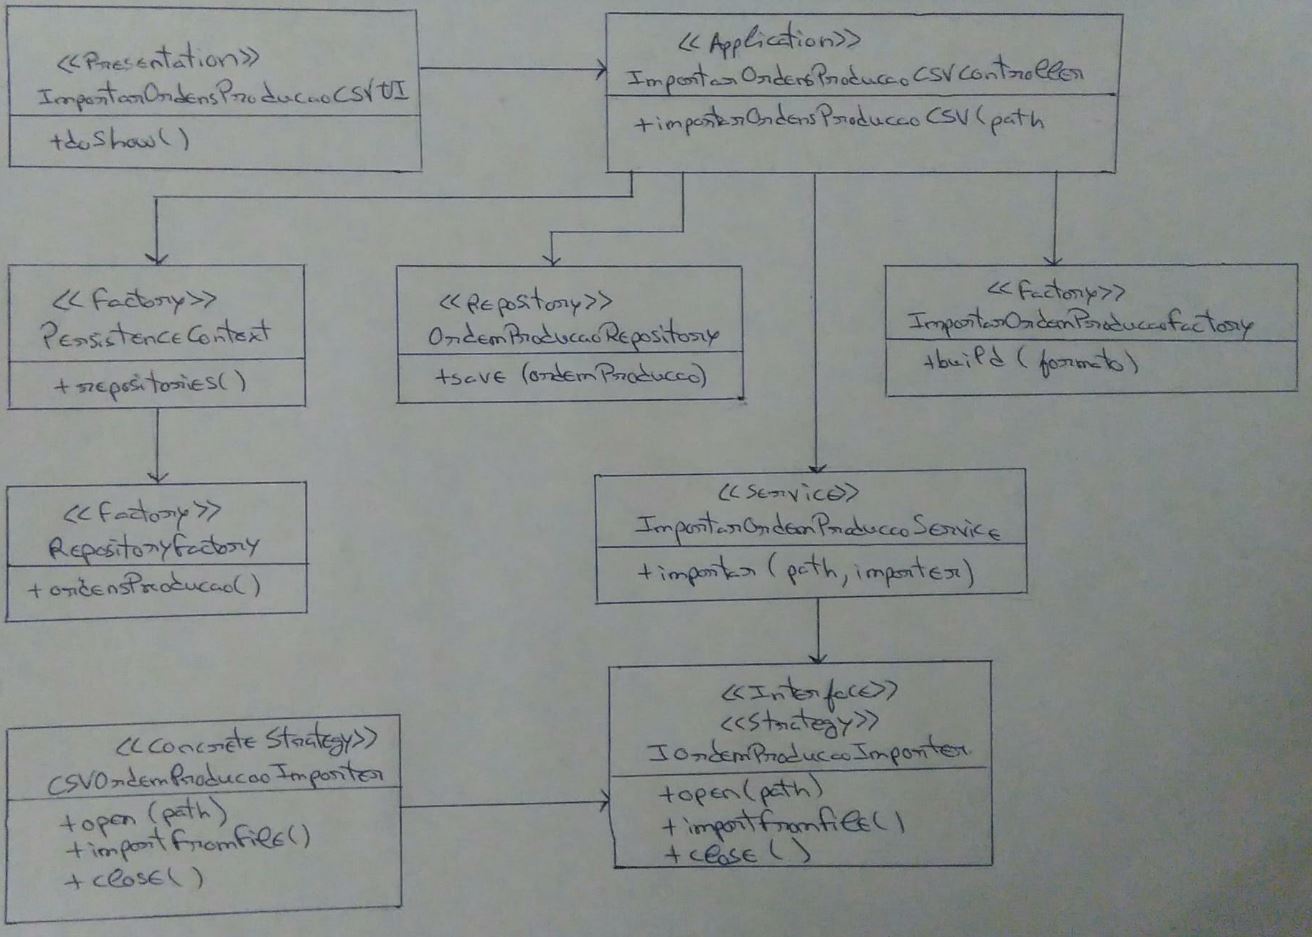 <<Presentation>>
ImportarOrdensProducaoCSVUI
+doShow()
<<Application>>
ImportarOrdensProducaoCSVController
+importarOrdensProducaoCSV(path
<<Factory>>
PersistenceContext
+repositories()
<<Repository>>
OrdemProducaoRepository
+save (ordemProducao)
<<Factory>>
ImportarOrdemProducaoFactory
+build (formato)
<<Factory>>
RepositoryFactory
+ordensProducao()
<<Service>>
ImportarOrdemProducaoService
+importar (path, importer)
<<Concrete Strategy>>
CSVOrdemProducaoImporter
+open (path)
+importFromFile()
+close()
<<Interface>>
<<Strategy>>
IOrdemProducaoImporter
+open(path)
+importFromFile()
+close()